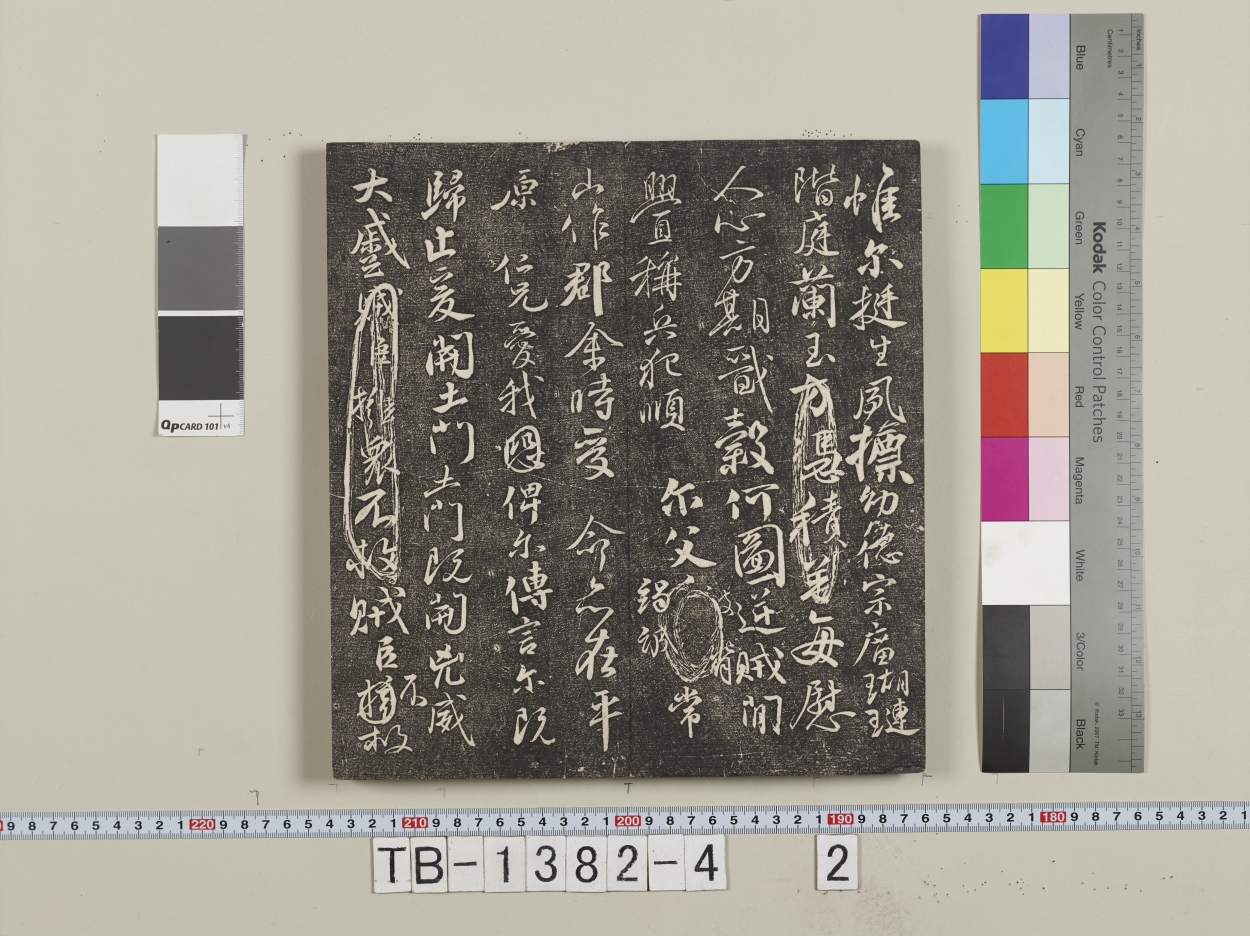 惟尔挺生夙標幼德宗廟瑚璉
階庭蘭玉方憑積善每慰
人心方期戩穀何圖逆賊閒
舋稱兵犯順 尔父竭誠常
被脅
山作郡余時受 命亦在平
原 仁兄愛我恐俾尔傳言尔既
歸止爰開土門土門既開凶威
大蹙賊臣擁衆不救賊臣擁
不救
Blue
Cyan
Green
Yellow
Red
Magenta
White
3/Color
Black
Kodak Color Control Patches
Inches
Centimetres
QPCARD 101 v4
9 8 7 6 5 4 3 2 1 220 9 8 7 6 5 4 3 2 1 210 9 8 7 6 5 4 3 2 1 200 9 8 7 6 5 4 3 2 1 190 9 8 7 6 5 4 3 2 1 180 9 8 7 6 5 4 3 2 1
TB-1382-4 2